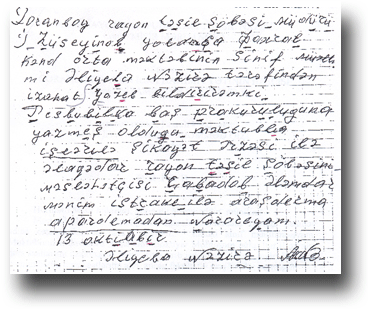 Goranboy rayon təsil şöbəsi müdürü
Hüseyinov yoldaşa Faxralı
Kənd orta məktəbinin sinif müəlli
mi Əliyeva Nəzirə tərəfindən
izahat yazıb bildirirəmki
Respublika baş prokuruluguna
yazmış olduğu məktubla
işəsirlə şikayət ərizəsi ilə
əlaqədar rayon təsile şöbəsini
məsləhətçisi Qabadov Ələmdar
mənim iştirake ilə araşdırma
aparılmadan
13 oktiabir
Əliyeva Nəzirə